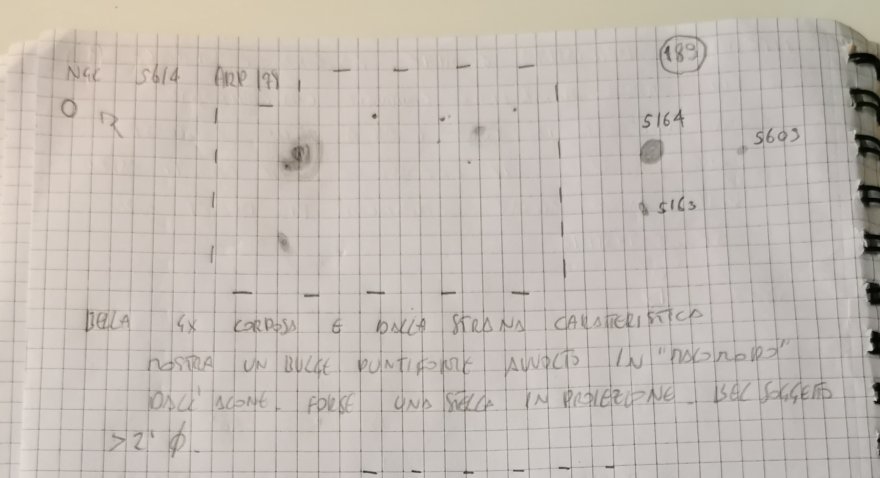 NGC 5614 ARP 199
189
O R
5164
5609
5163
BELLA GX CORPOSA E DALLA STRANA CARATTERISTICA
MOSTRA UN BULGE PUNTIFORME AVVOLTO IN
DALL'ALONE. FORSE UNA STELLA IN PROIEZIONE. BEL SOGGETTO
>2' φ.